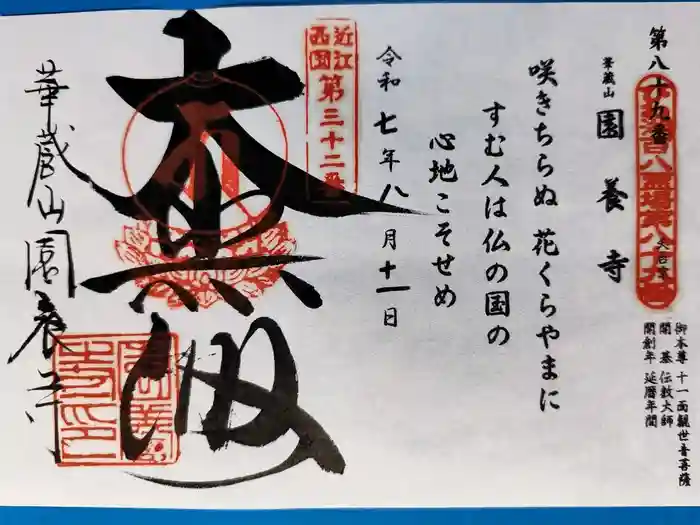 第八十九番
百八霊場第八十九番
天台宗
華蔵山
園養寺
御本尊 十一面観世音菩薩
開基 伝教大師
開創年 延暦年間
咲きちらぬ 花くらやまに
すむ人は仏の国の
心地こそせめ
令和七年八月十一日
近江
西国
第三十二番
華蔵山園養寺
園養
寺印